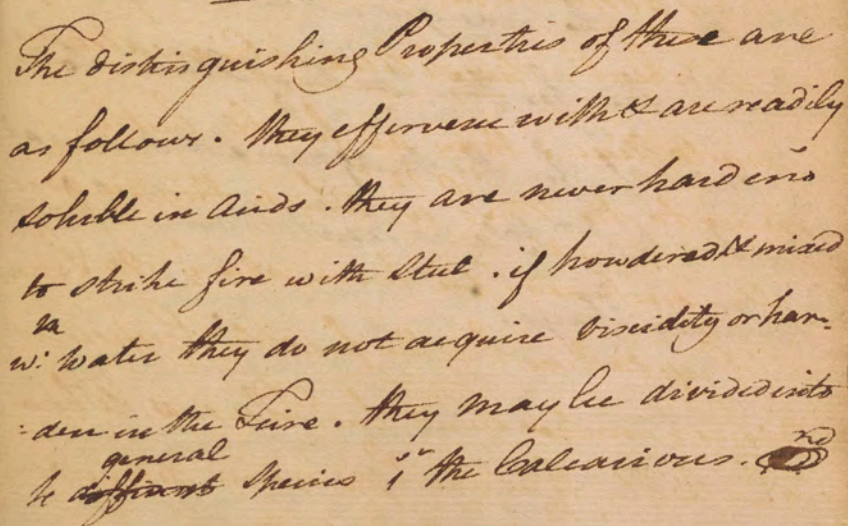 The distinguishing Properties of these are
as follows. they effervesce with & are readily
soluble in Acids. they are never hard eno
to strike fire with Steel. if powdered & mixed
wt. water they do not acquire viscidity or har-
-den in the Fire. they may be divided into
general
species 1st the Calcarious. 2nd